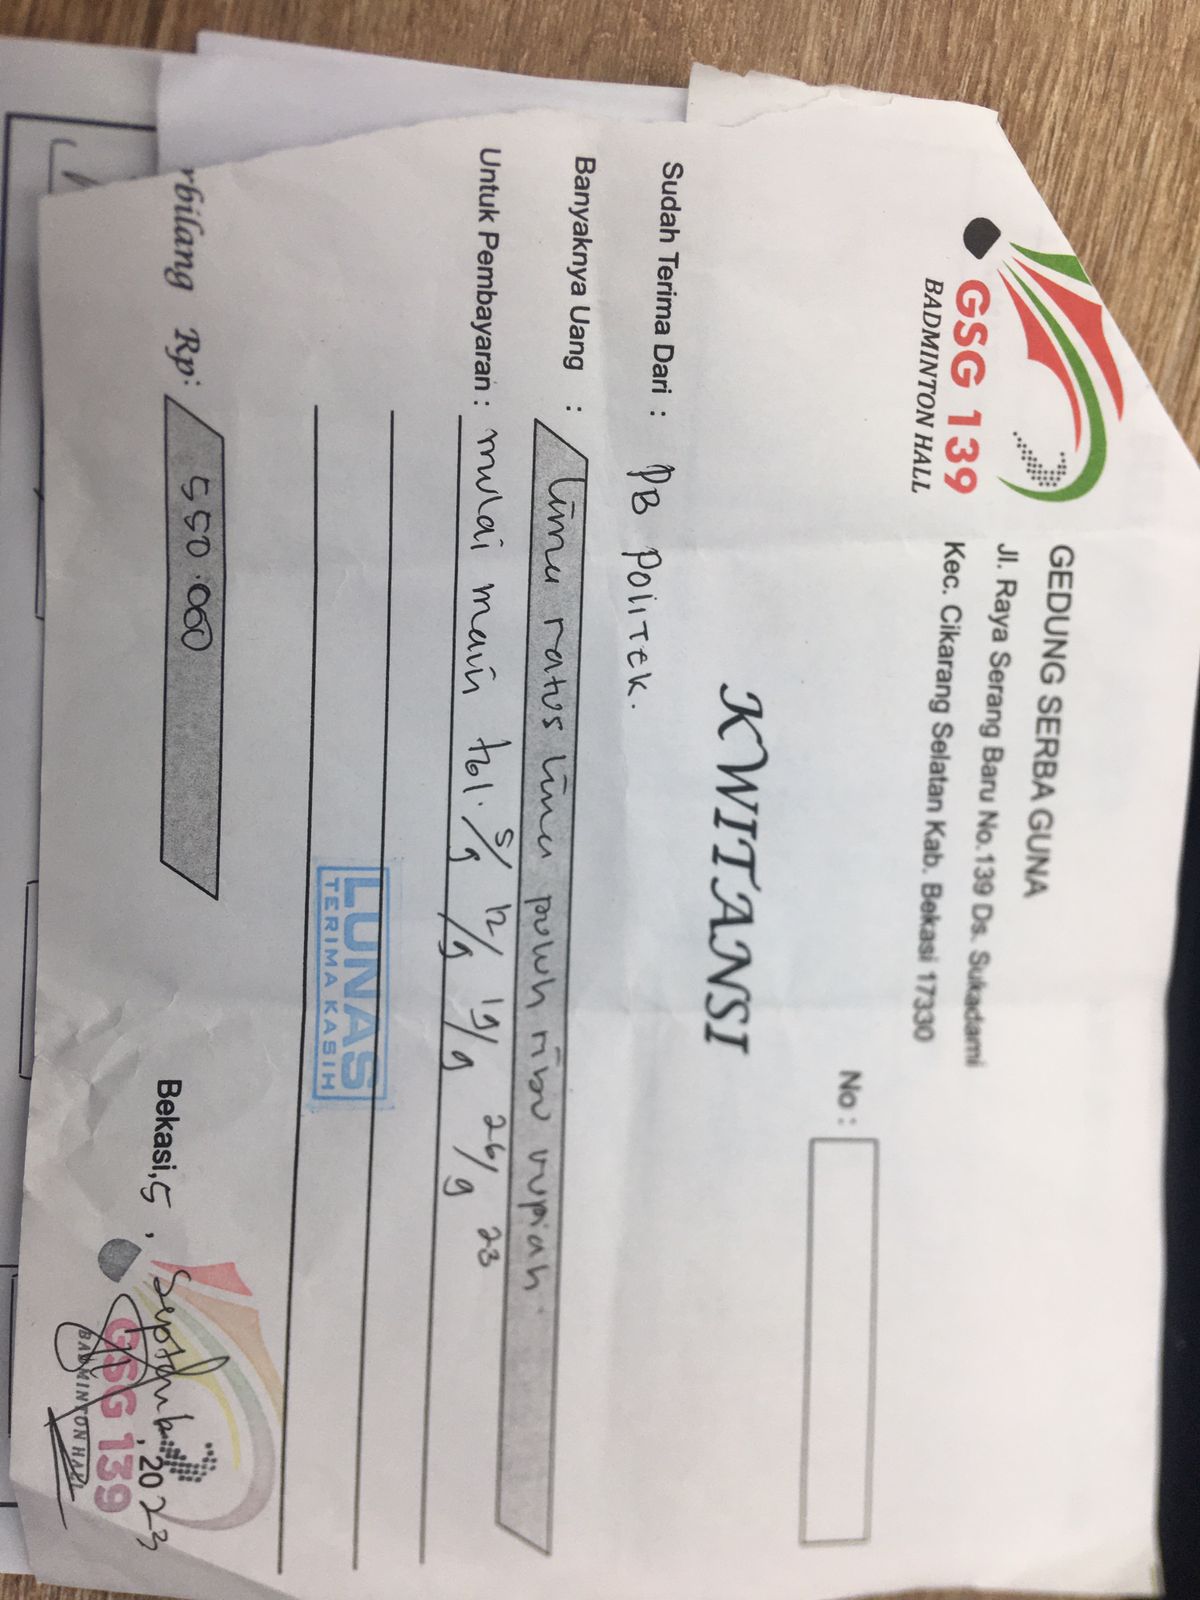 GSG 139
BADMINTON HALL
GEDUNG SERBA GUNA
Jl. Raya Serang Baru No.139 Ds. Sukadami
Kec. Cikarang Selatan Kab. Bekasi 17330
No :
KWITANSI
Sudah Terima Dari : PB POLITEK.
Banyaknya Uang : lima ratus lima puluh ribu rupiah
Untuk Pembayaran : mulai main tgl. 5/9 12/9 19/9 26/9 23
LUNAS
TERIMA KASIH
rbilang Rp: 550.000
Bekasi, 5, September, 2023
GSG 139
BADMINTON HALL